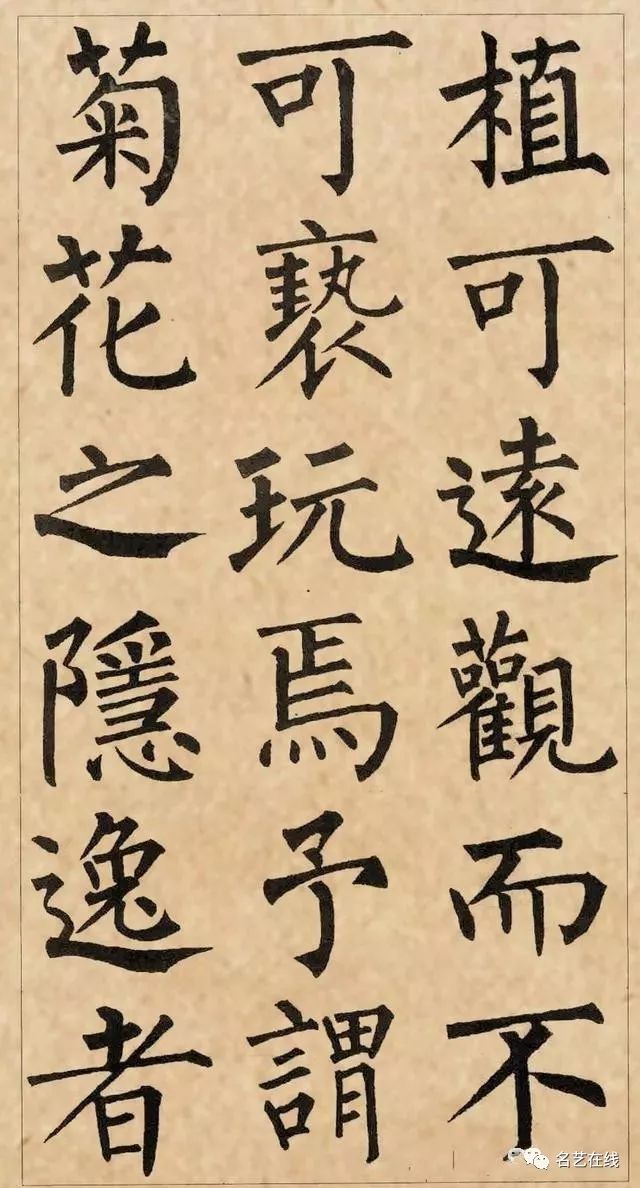 植可遠觀而不
可褻玩焉予謂
菊花之隱逸者
名艺在线